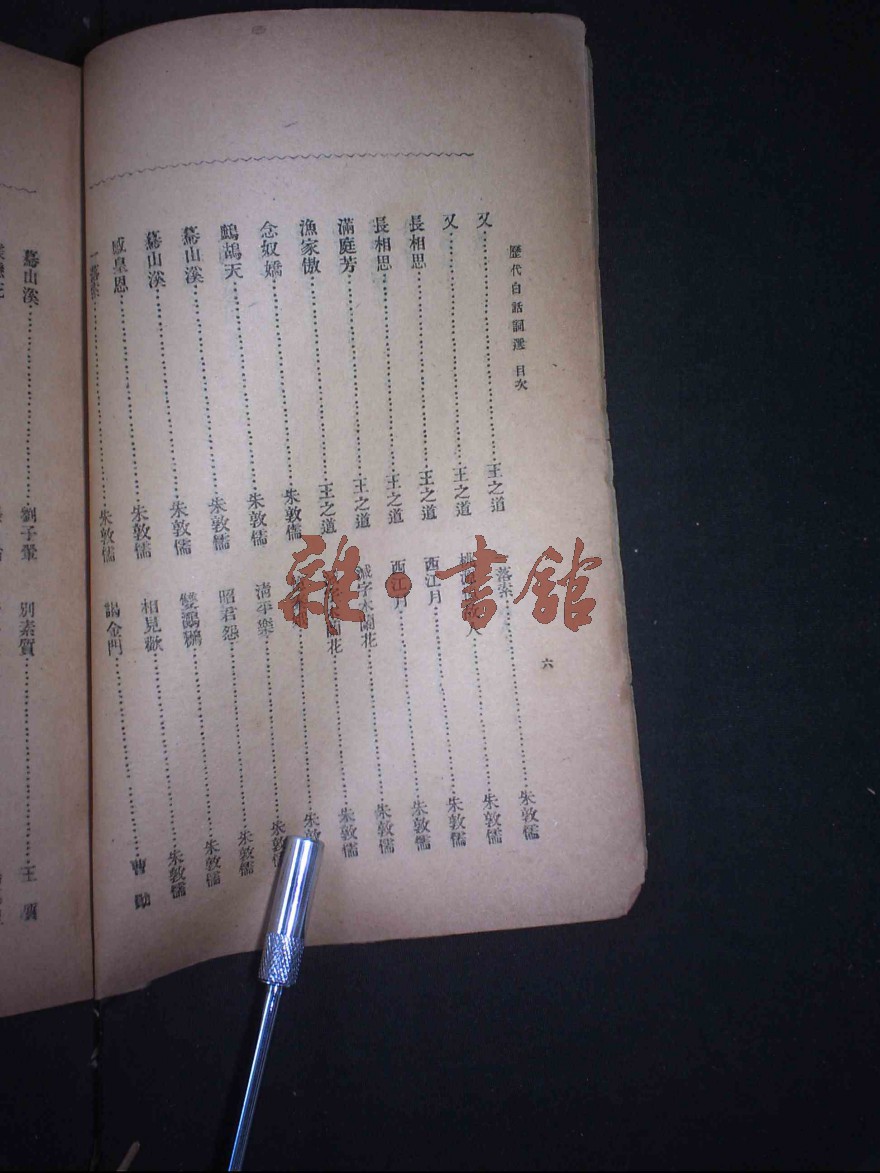 歷代白話詞選 目次
六
又……王之道
又……王之道
長相思……王之道
長相思……王之道
滿庭芳……王之道
漁家傲……王之道
念奴嬌……朱敦儒
鷓鴣天……朱敦儒
驀山溪……朱敦儒
驀山溪……朱敦儒
感皇恩……朱敦儒
一落索……朱敦儒
落索……朱敦儒
人……朱敦儒
西江月……朱敦儒
西江月……朱敦儒
減字木蘭花……朱敦儒
蘭花……朱敦儒
朱敦
清平樂……朱敦儒
昭君怨……朱敦儒
雙鸂鶒……朱敦儒
相見歡……朱敦儒
謁金門……曹勛
驀山溪……劉子翬
別素質……王質
雜·書館